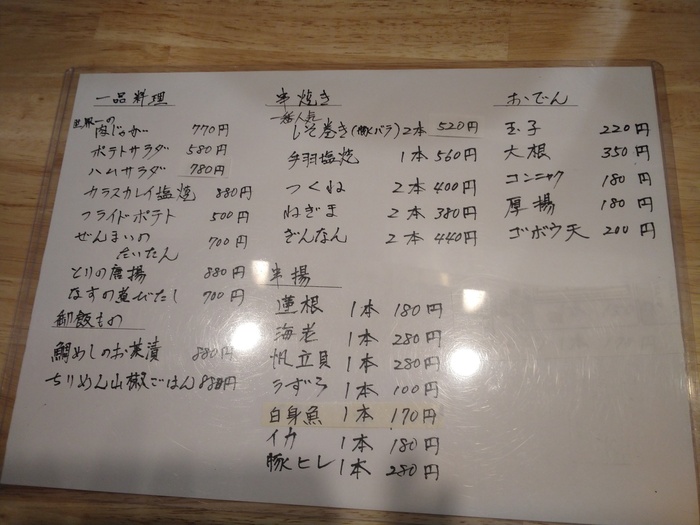 一品料理
世界一の
肉じゃが 770円
ポテトサラダ 580円
ハムサラダ 780円
カラスカレイ塩焼 880円
フライドポテト 500円
ぜんまいの
たいたん 700円
とりの唐揚 880円
なすの煮びたし 700円
御飯もの
鯛めしのお茶漬 880円
ちりめん山椒ごはん 880円
串焼き
一番人気
しそ巻き(豚バラ) 2本 520円
手羽塩焼 1本 560円
つくね 2本 400円
ねぎま 2本 380円
ぎんなん 2本 440円
串揚
蓮根 1本 180円
海老 1本 280円
帆立貝 1本 280円
うずら 1本 100円
白身魚 1本 170円
イカ 1本 180円
豚ヒレ 1本 280円
おでん
玉子 220円
大根 350円
コンニャク 180円
厚揚 180円
ゴボウ天 200円